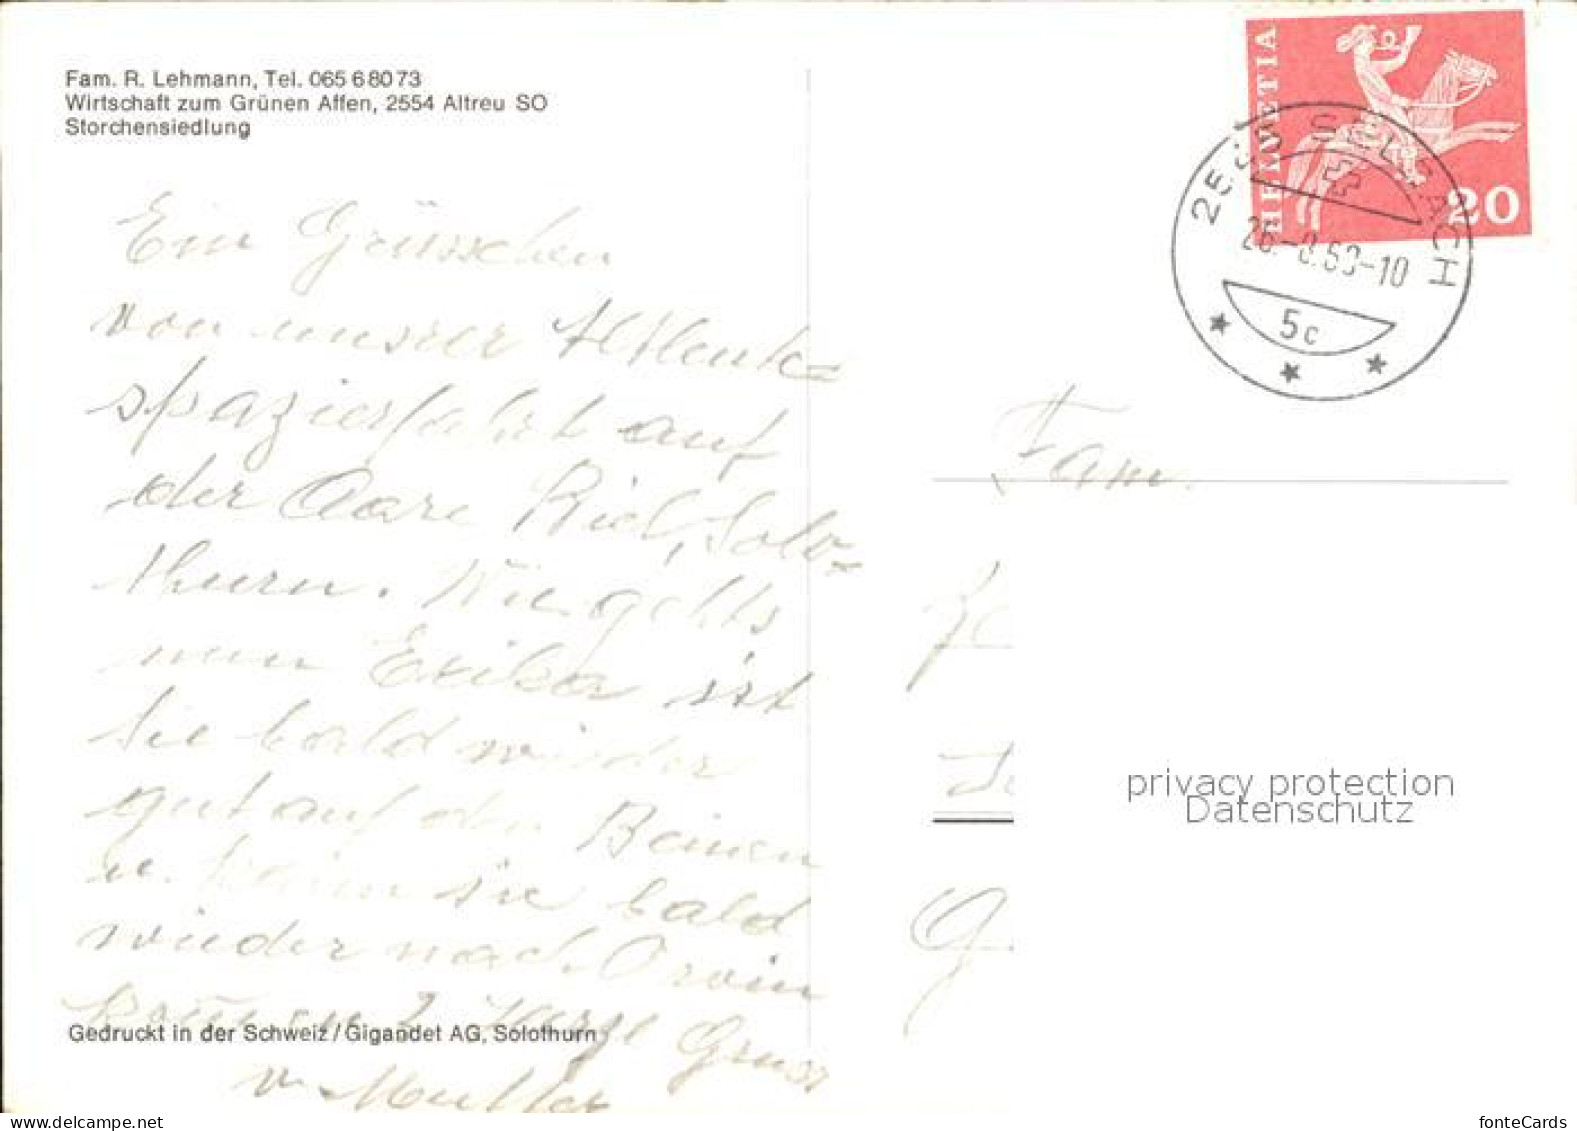 Fam. R. Lehmann, Tel. 065 6 80 73
Wirtschaft zum Grünen Affen, 2554 Altreu SO
Storchensiedlung
HELVETIA
20
SELZACH
5c
Ein Grüsschen
von unserer
spazierfahrt auf
der Aare Biel, Solo-
thurn. Wie gehts
nun Erika ist
sie bald wieder
gut auf den Beinen
u. kann sie bald
wieder nach
Herzl Gruss
v. Mutter
Gedruckt in der Schweiz/Gigandet AG, Solothurn
Fam.
privacy protection
Datenschutz
www.delcampe.net
fonteCards